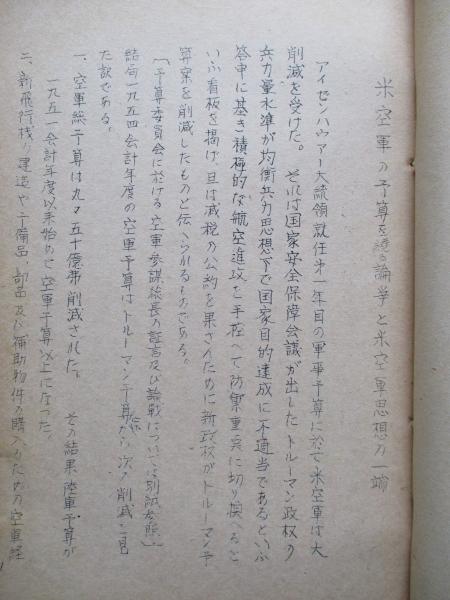 米空軍の予算を繞る論争と米空軍思想の一端
アイゼンハウアー大統領就任第一年目の軍事予算に於て米空軍は大
削減を受けた。それは国家安全保障会議が出したトルーマン政权の
兵力量水準が均衡兵力思想下で国家目的達成に不適当であるといふ
答申に基き積極的な航空進攻を手控へて防禦重実に切り換へると
いふ看板を掲げ、且は減税の公約を果さんために新政权がトルーマン予
算案を削減したものと伝へられるものである。
(予算委員会に於ける空軍参謀総長の証言及び論戦については別紙参照)
結局一九五四会計年度の空軍予算はトルーマン予算から次の削減を見
た訳である。
一、空軍総予算は九々五十億弗削減された。 その結果陸軍予算が
一九五一会計年度以来始めて空軍予算以上になった。
二、新飛行機の建造や予備品、部品及び補助物件の購入のための空軍経